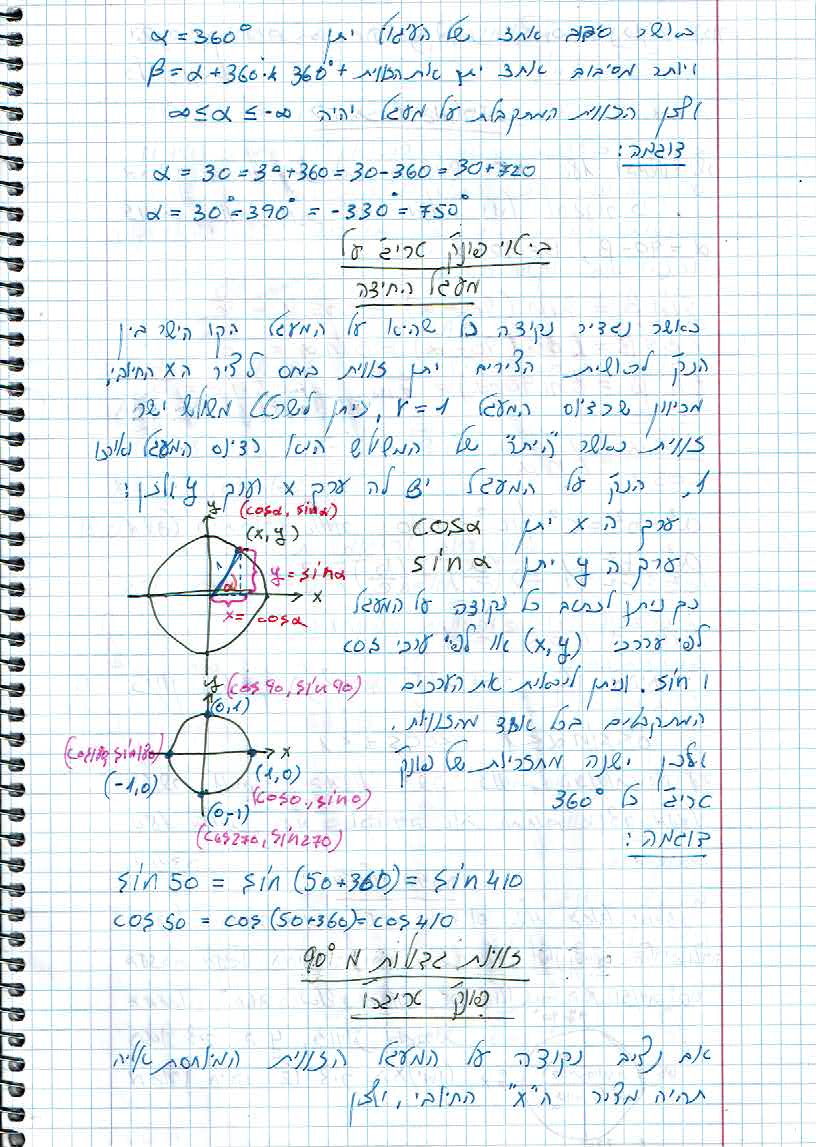 כאשר סבוב אחד של העיגול יתן α = 360°
ויותר מסיבוב אחד יתן את הזווית + 360° β = α + 360·k
ולכן הזווית המתקבלת על מעגל יהיה ∞ ≤ α ≤ -∞
דוגמה:
α = 30 = 30+360 = 30-360 = 30+720
α = 30° = 390° = -330° = 750°
ביטוי פונק' טריג' על
מעגל היחידה
כאשר נגדיר נקודה כל שהיא על המעגל הקו הישר בין
הנק' לראשית הצירים יתן זווית ביחס לציר הx החיובי,
מכיוון שרדיוס המעגל r = 1, ניתן לשרטט משולש ישר
זווית כאשר "היתר" של המשולש הוא רדיוס המעגל ואורכו
1, הנק' על המעגל יש לה ערך x וערך y ולכן:
ערך ה x יתן cosα
ערך ה y יתן sinα
כך ניתן לכתוב כל נקודה על המעגל
לפי ערכי (x,y) או לפי ערכי cos
ו sin. וניתן לראות את הערכים
המתקבלים בכל אחד מהזוויות.
ולכן ישנה מחזוריות של פונק'
טריג' כל 360°
y
(cosα, sinα)
(x,y)
1
α
y = sinα
x
x = cosα
y
(cos90, sin90)
(0,1)
(cos180, sin180)
x
(-1,0)
(1,0)
(cos0, sin0)
(0,-1)
(cos270, sin270)
דוגמה:
sin 50 = sin (50+360) = sin 410
cos 50 = cos (50+360) = cos 410
זוויות גדולות מ 90°
פונק' טריגו'
אם נציב נקודה על המעגל הזווית המיוחסת אליה
תהיה מציר ה"x" החיובי, ולכן